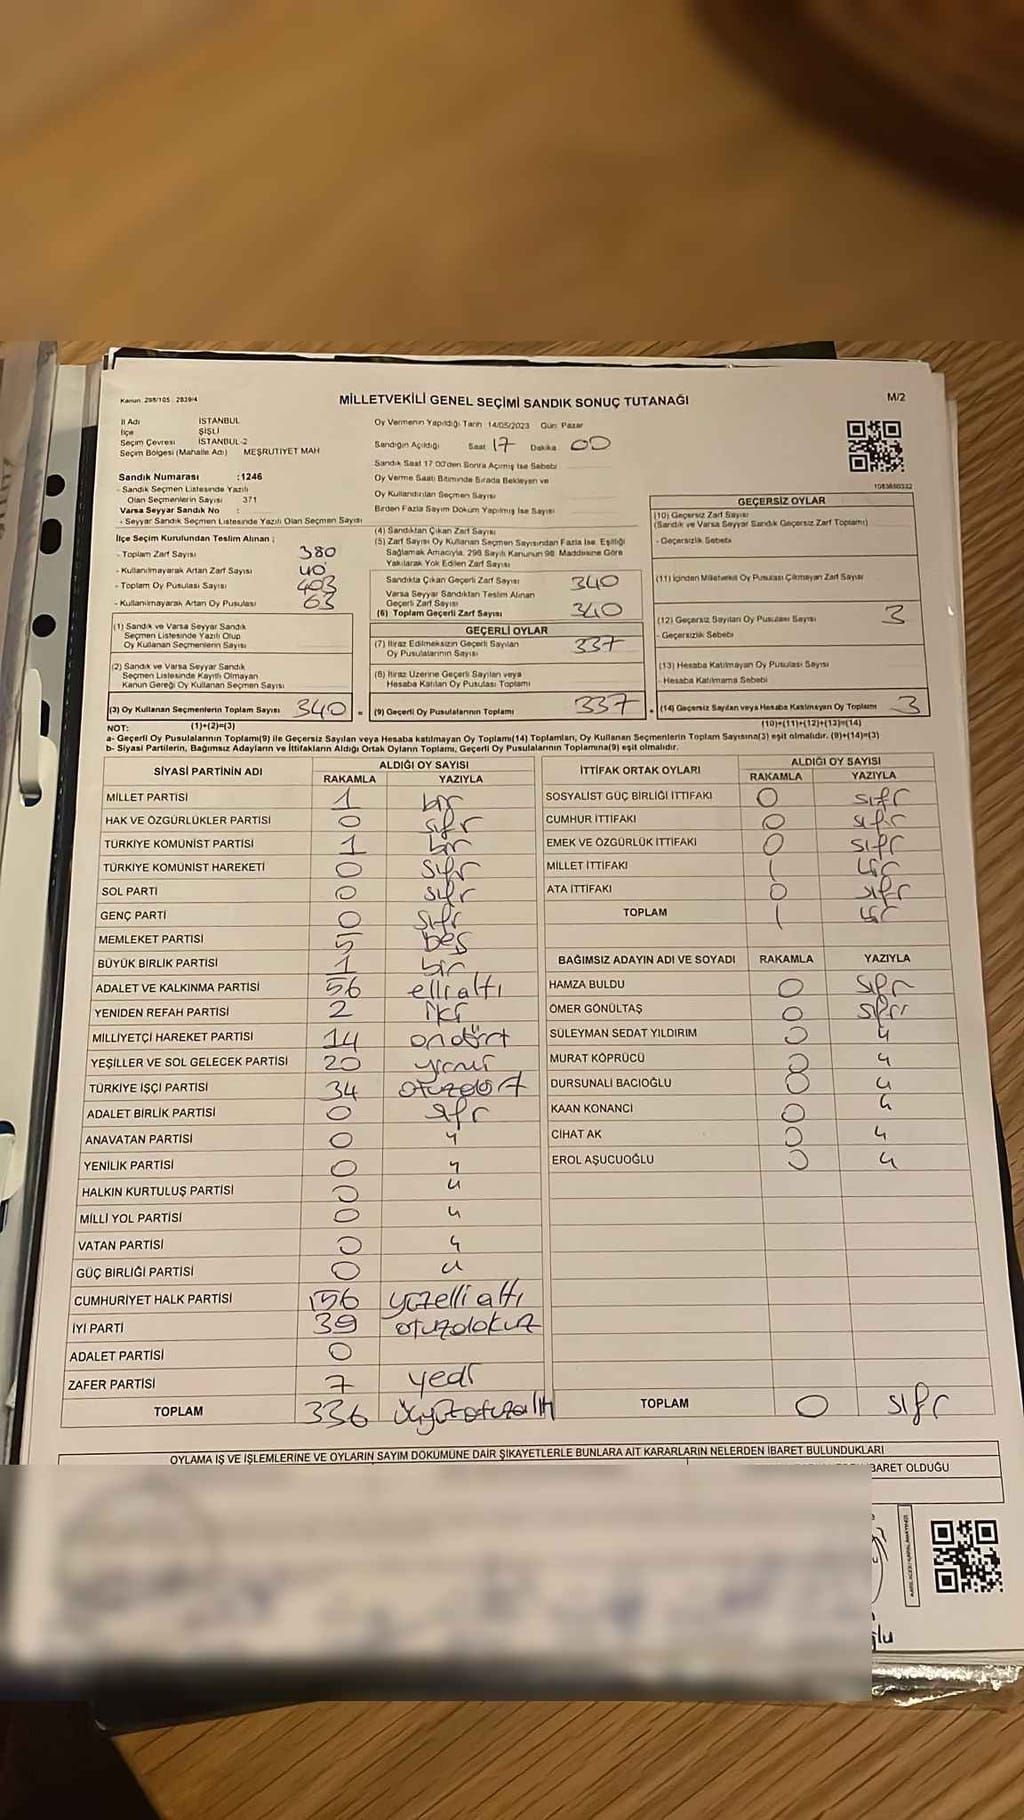 Kanun: 298/105 : 2839/4
MİLLETVEKİLİ GENEL SEÇİMİ SANDIK SONUÇ TUTANAĞI
M/2
İl Adı İSTANBUL
İlçe ŞİŞLİ
Seçim Çevresi İSTANBUL-2
Seçim Bölgesi (Mahalle Adı) MEŞRUTİYET MAH
Sandık Numarası :1246
- Sandık Seçmen Listesinde Yazılı
Olan Seçmenlerin Sayısı 371
Varsa Seyyar Sandık No :
- Seyyar Sandık Seçmen Listesinde Yazılı Olan Seçmen Sayısı
İlçe Seçim Kurulundan Teslim Alınan ;
- Toplam Zarf Sayısı 380
- Kullanılmayarak Artan Zarf Sayısı 40
- Toplam Oy Pusulası Sayısı 403
- Kullanılmayarak Artan Oy Pusulası 63
(1) Sandık ve Varsa Seyyar Sandık
Seçmen Listesinde Yazılı Olup
Oy Kullanan Seçmenlerin Sayısı
(2) Sandık ve Varsa Seyyar Sandık
Seçmen Listesinde Kayıtlı Olmayan
Kanun Gereği Oy Kullanan Seçmen Sayısı
(3) Oy Kullanan Seçmenlerin Toplam Sayısı 340
Oy Vermenin Yapıldığı Tarih 14/05/2023 Gün: Pazar
Sandığın Açıldığı Saat 17 Dakika 00
Sandık Saat 17:00'den Sonra Açılmış İse Sebebi
Oy Verme Saati Bitiminde Sırada Bekleyen ve
Oy Kullandırılan Seçmen Sayısı
Birden Fazla Sayım Döküm Yapılmış İse Sayısı
(4) Sandıktan Çıkan Zarf Sayısı
(5) Zarf Sayısı Oy Kullanan Seçmen Sayısından Fazla İse, Eşitliği
Sağlamak Amacıyla, 298 Sayılı Kanunun 98. Maddesine Göre
Yakılarak Yok Edilen Zarf Sayısı
Sandıkta Çıkan Geçerli Zarf Sayısı 340
Varsa Seyyar Sandıktan Teslim Alınan
Geçerli Zarf Sayısı
(6) Toplam Geçerli Zarf Sayısı 340
GEÇERLİ OYLAR
(7) İtiraz Edilmeksizin Geçerli Sayılan
Oy Pusulalarının Sayısı 337
(8) İtiraz Üzerine Geçerli Sayılan veya
Hesaba Katılan Oy Pusulası Toplamı
= (9) Geçerli Oy Pusulalarının Toplamı 337
1083650332
GEÇERSİZ OYLAR
(10) Geçersiz Zarf Sayısı
(Sandık ve Varsa Seyyar Sandık Geçersiz Zarf Toplamı)
- Geçersizlik Sebebi
(11) İçinden Milletvekili Oy Pusulası Çıkmayan Zarf Sayısı
(12) Geçersiz Sayılan Oy Pusulası Sayısı 3
- Geçersizlik Sebebi
(13) Hesaba Katılmayan Oy Pusulası Sayısı
- Hesaba Katılmama Sebebi
+ (14) Geçersiz Sayılan veya Hesaba Katılmayan Oy Toplamı 3
NOT: (1)+(2)=(3) (10)+(11)+(12)+(13)=(14)
a- Geçerli Oy Pusulalarının Toplamı(9) ile Geçersiz Sayılan veya Hesaba katılmayan Oy Toplamı(14) Toplamları, Oy Kullanan Seçmenlerin Toplam Sayısına(3) eşit olmalıdır. (9)+(14)=(3)
b- Siyasi Partilerin, Bağımsız Adayların ve İttifakların Aldığı Ortak Oyların Toplamı, Geçerli Oy Pusulalarının Toplamına(9) eşit olmalıdır.
SİYASİ PARTİNİN ADI ALDIĞI OY SAYISI
RAKAMLA YAZIYLA
MİLLET PARTİSİ 1 bir
HAK VE ÖZGÜRLÜKLER PARTİSİ 0 sıfır
TÜRKİYE KOMÜNİST PARTİSİ 1 bir
TÜRKİYE KOMÜNİST HAREKETİ 0 sıfır
SOL PARTİ 0 sıfır
GENÇ PARTİ 0 sıfır
MEMLEKET PARTİSİ 5 beş
BÜYÜK BİRLİK PARTİSİ 1 bir
ADALET VE KALKINMA PARTİSİ 56 elli altı
YENİDEN REFAH PARTİSİ 2 iki
MİLLİYETÇİ HAREKET PARTİSİ 14 ondört
YEŞİLLER VE SOL GELECEK PARTİSİ 20 yirmi
TÜRKİYE İŞÇİ PARTİSİ 34 otuzdört
ADALET BİRLİK PARTİSİ 0 sıfır
ANAVATAN PARTİSİ 0 "
YENİLİK PARTİSİ 0 "
HALKIN KURTULUŞ PARTİSİ 0 "
MİLLİ YOL PARTİSİ 0 "
VATAN PARTİSİ 0 "
GÜÇ BİRLİĞİ PARTİSİ 0 "
CUMHURİYET HALK PARTİSİ 156 yüzelli altı
İYİ PARTİ 39 otuzdokuz
ADALET PARTİSİ 0
ZAFER PARTİSİ 7 yedi
TOPLAM 336 üçyüzotuzaltı
İTTİFAK ORTAK OYLARI ALDIĞI OY SAYISI
RAKAMLA YAZIYLA
SOSYALİST GÜÇ BİRLİĞİ İTTİFAKI 0 sıfır
CUMHUR İTTİFAKI 0 sıfır
EMEK VE ÖZGÜRLÜK İTTİFAKI 0 sıfır
MİLLET İTTİFAKI 1 bir
ATA İTTİFAKI 0 sıfır
TOPLAM 1 bir
BAĞIMSIZ ADAYIN ADI VE SOYADI RAKAMLA YAZIYLA
HAMZA BULDU 0 sıfır
ÖMER GÖNÜLTAŞ 0 sıfır
SÜLEYMAN SEDAT YILDIRIM 0 "
MURAT KÖPRÜCÜ 0 "
DURSUNALİ BACIOĞLU 0 "
KAAN KONANCİ 0 "
CİHAT AK 0 "
EROL AŞUCUOĞLU 0 "
TOPLAM 0 sıfır
OYLAMA İŞ VE İŞLEMLERİNE VE OYLARIN SAYIM DÖKÜMÜNE DAİR ŞİKAYETLERLE BUNLARA AİT KARARLARIN NELERDEN İBARET BULUNDUKLARI
BARET OLDUĞU